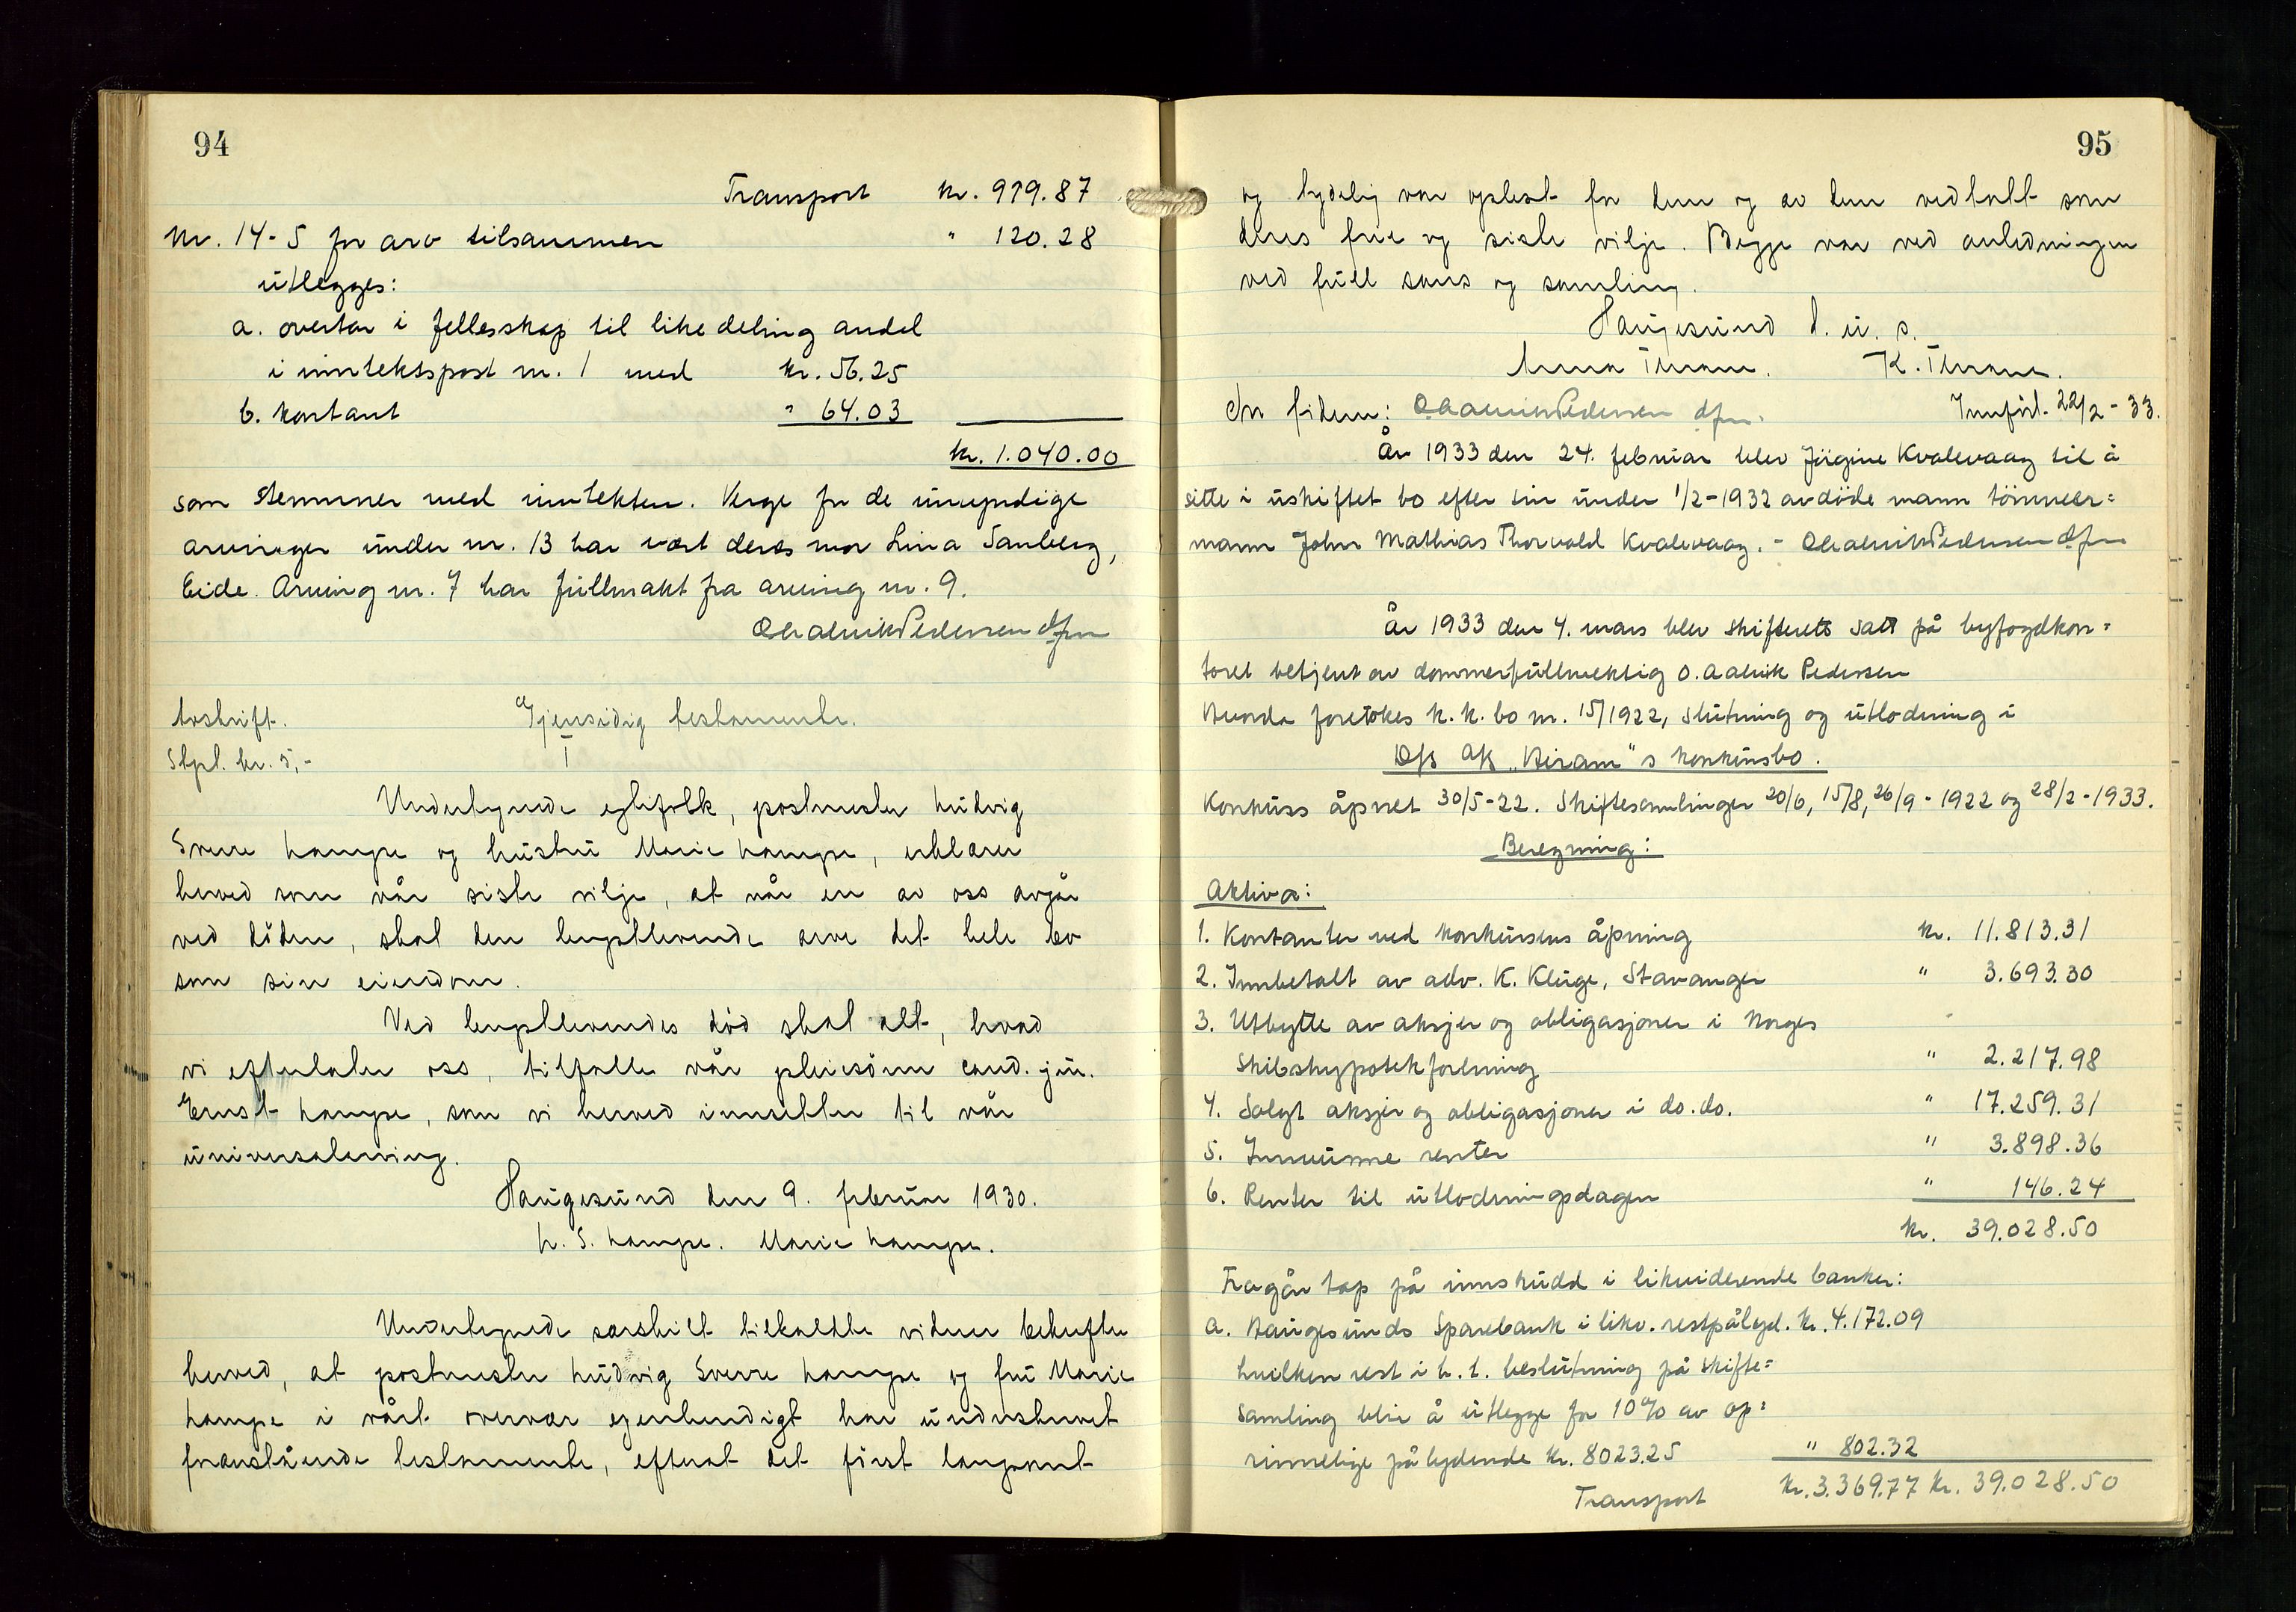 94
Transport kr. 919.87
Nr. 14-5 for arv tilsammen " 120.28
utlegges:
a. overtar i fellesskap til like deling andel
i inntektspost nr. 1 med kr. 56.25
b. kontant " 64.03
kr. 1.040.00
som stemmer med inntekten. Verge for de umyndige
arvinger under nr. 13 har vært deres mor Lina Sanberg,
Eide. Arving nr. 7 har fullmakt fra arving nr. 9.
O. Aalvik Pedersen dfm
Avskrift. Gjensidig testamente.
Stpl. kr. 5,- I
Undertegnede ektefolk, postmester Ludvig
Sverre Lampe og hustru Marie Lampe, erklærer
herved som vår siste vilje, at når en av oss avgår
ved døden, skal den lengstlevende arve det hele bo
som sin eiendom.
Ved lengstlevendes død skal alt, hvad
vi efterlater oss, tilfalle vår pleiesønn cand. jur.
Ernst Lampe, som vi herved innsetter til vår
universalarving.
Haugesund den 9. februar 1930.
L. S. Lampe. Marie Lampe.
Undertegnede særskilt tilkaldte vidner bekrefter
herved, at postmester Ludvig Sverre Lampe og fru Marie
Lampe i vårt overvær egenhendigt har underskrevet
foranstående testamente, efterat det først langsomt
95
og tydelig var oplest for dem og av dem vedtatt som
deres frie og siste vilje. Begge var ved anledningen
ved full sans og samling.
Haugesund d. u. s.
Anna Thrane. K. Thrane.
In fidem: O. Aalvik Pedersen dfm. Innført 22/2-33.
År 1933 den 24. februar blev Jørgine Kvalevaag til å
sitte i uskiftet bo efter sin under 1/2-1932 avdøde mann tømmer=
mann John Mathias Thorvald Kvalevaag. - O. Aalvik Pedersen dfm
År 1933 den 4. mars blev skifterett satt på byfogdkon=
toret betjent av dommerfullmektig O. Aalvik Pedersen
Hvorda foretokes k. k. bo nr. 15/1922, slutning og utlodning i
D/s A/s "Hiram"s konkursbo.
Konkurs åpnet 30/5-22. Skiftesamlinger 20/6, 15/8, 26/9-1922 og 28/2-1933.
Beregning:
Aktiva:
1. Kontanter ved konkursens åpning kr. 11.813.31
2. Innbetalt av adv. K. Kluge, Stavanger " 3.693.30
3. Utbytte av aksjer og obligasjoner i Norges
Skibshypotekforening " 2.217.98
4. Solgt aksjer og obligasjoner i do. do. " 17.259.31
5. Innvunne renter " 3.898.36
6. Renter til utlodningsdagen " 146.24
kr. 39.028.50
Fragår tap på innskudd i likviderende banker:
a. Haugesunds Sparebank i likv. restpålyd. kr. 4.172.09
hvilken rest i h. t. beslutning på skifte=
samling blir å utlegge for 10% av op=
rinnelige pålydende kr. 8023.25 " 802.32
Transport kr. 3.369.77 kr. 39.028.50